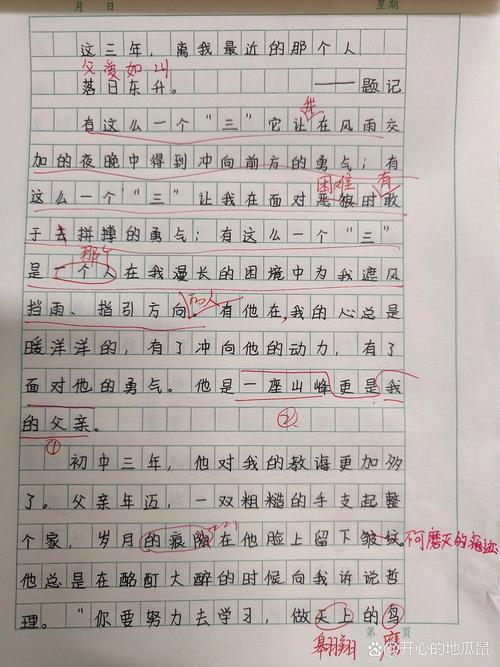 月 日 星期
这三年，离我最近的那个人
父爱如山
落日东升。 ——题记
我
有这么一个“三”它让在风雨交
加的夜晚中得到冲向前方的勇气；有
困难 有
这么一个“三”让我在面对恶狼时敢
于去拼搏的勇气；有这么一个“三”
那个
是一个人在我漫长的困境中为我遮风
的人
挡雨、指引方向。有他在，我的心总是
暖洋洋的，有了冲向他的动力，有了
面对他的勇气。他是一座山峰更是我
的父亲。
① ②
初中三年，他对我的教诲更加多
了。父亲年迈，一双粗糙的手支起整
个家，岁月的痕隙在他脸上留下皱纹。不可磨灭的痕迹
他总是在酩酊大醉的时候向我诉说哲
理。“你要努力去学习，做天上的鸟
翱翔 鹰
第 页
@开心的地瓜鼠